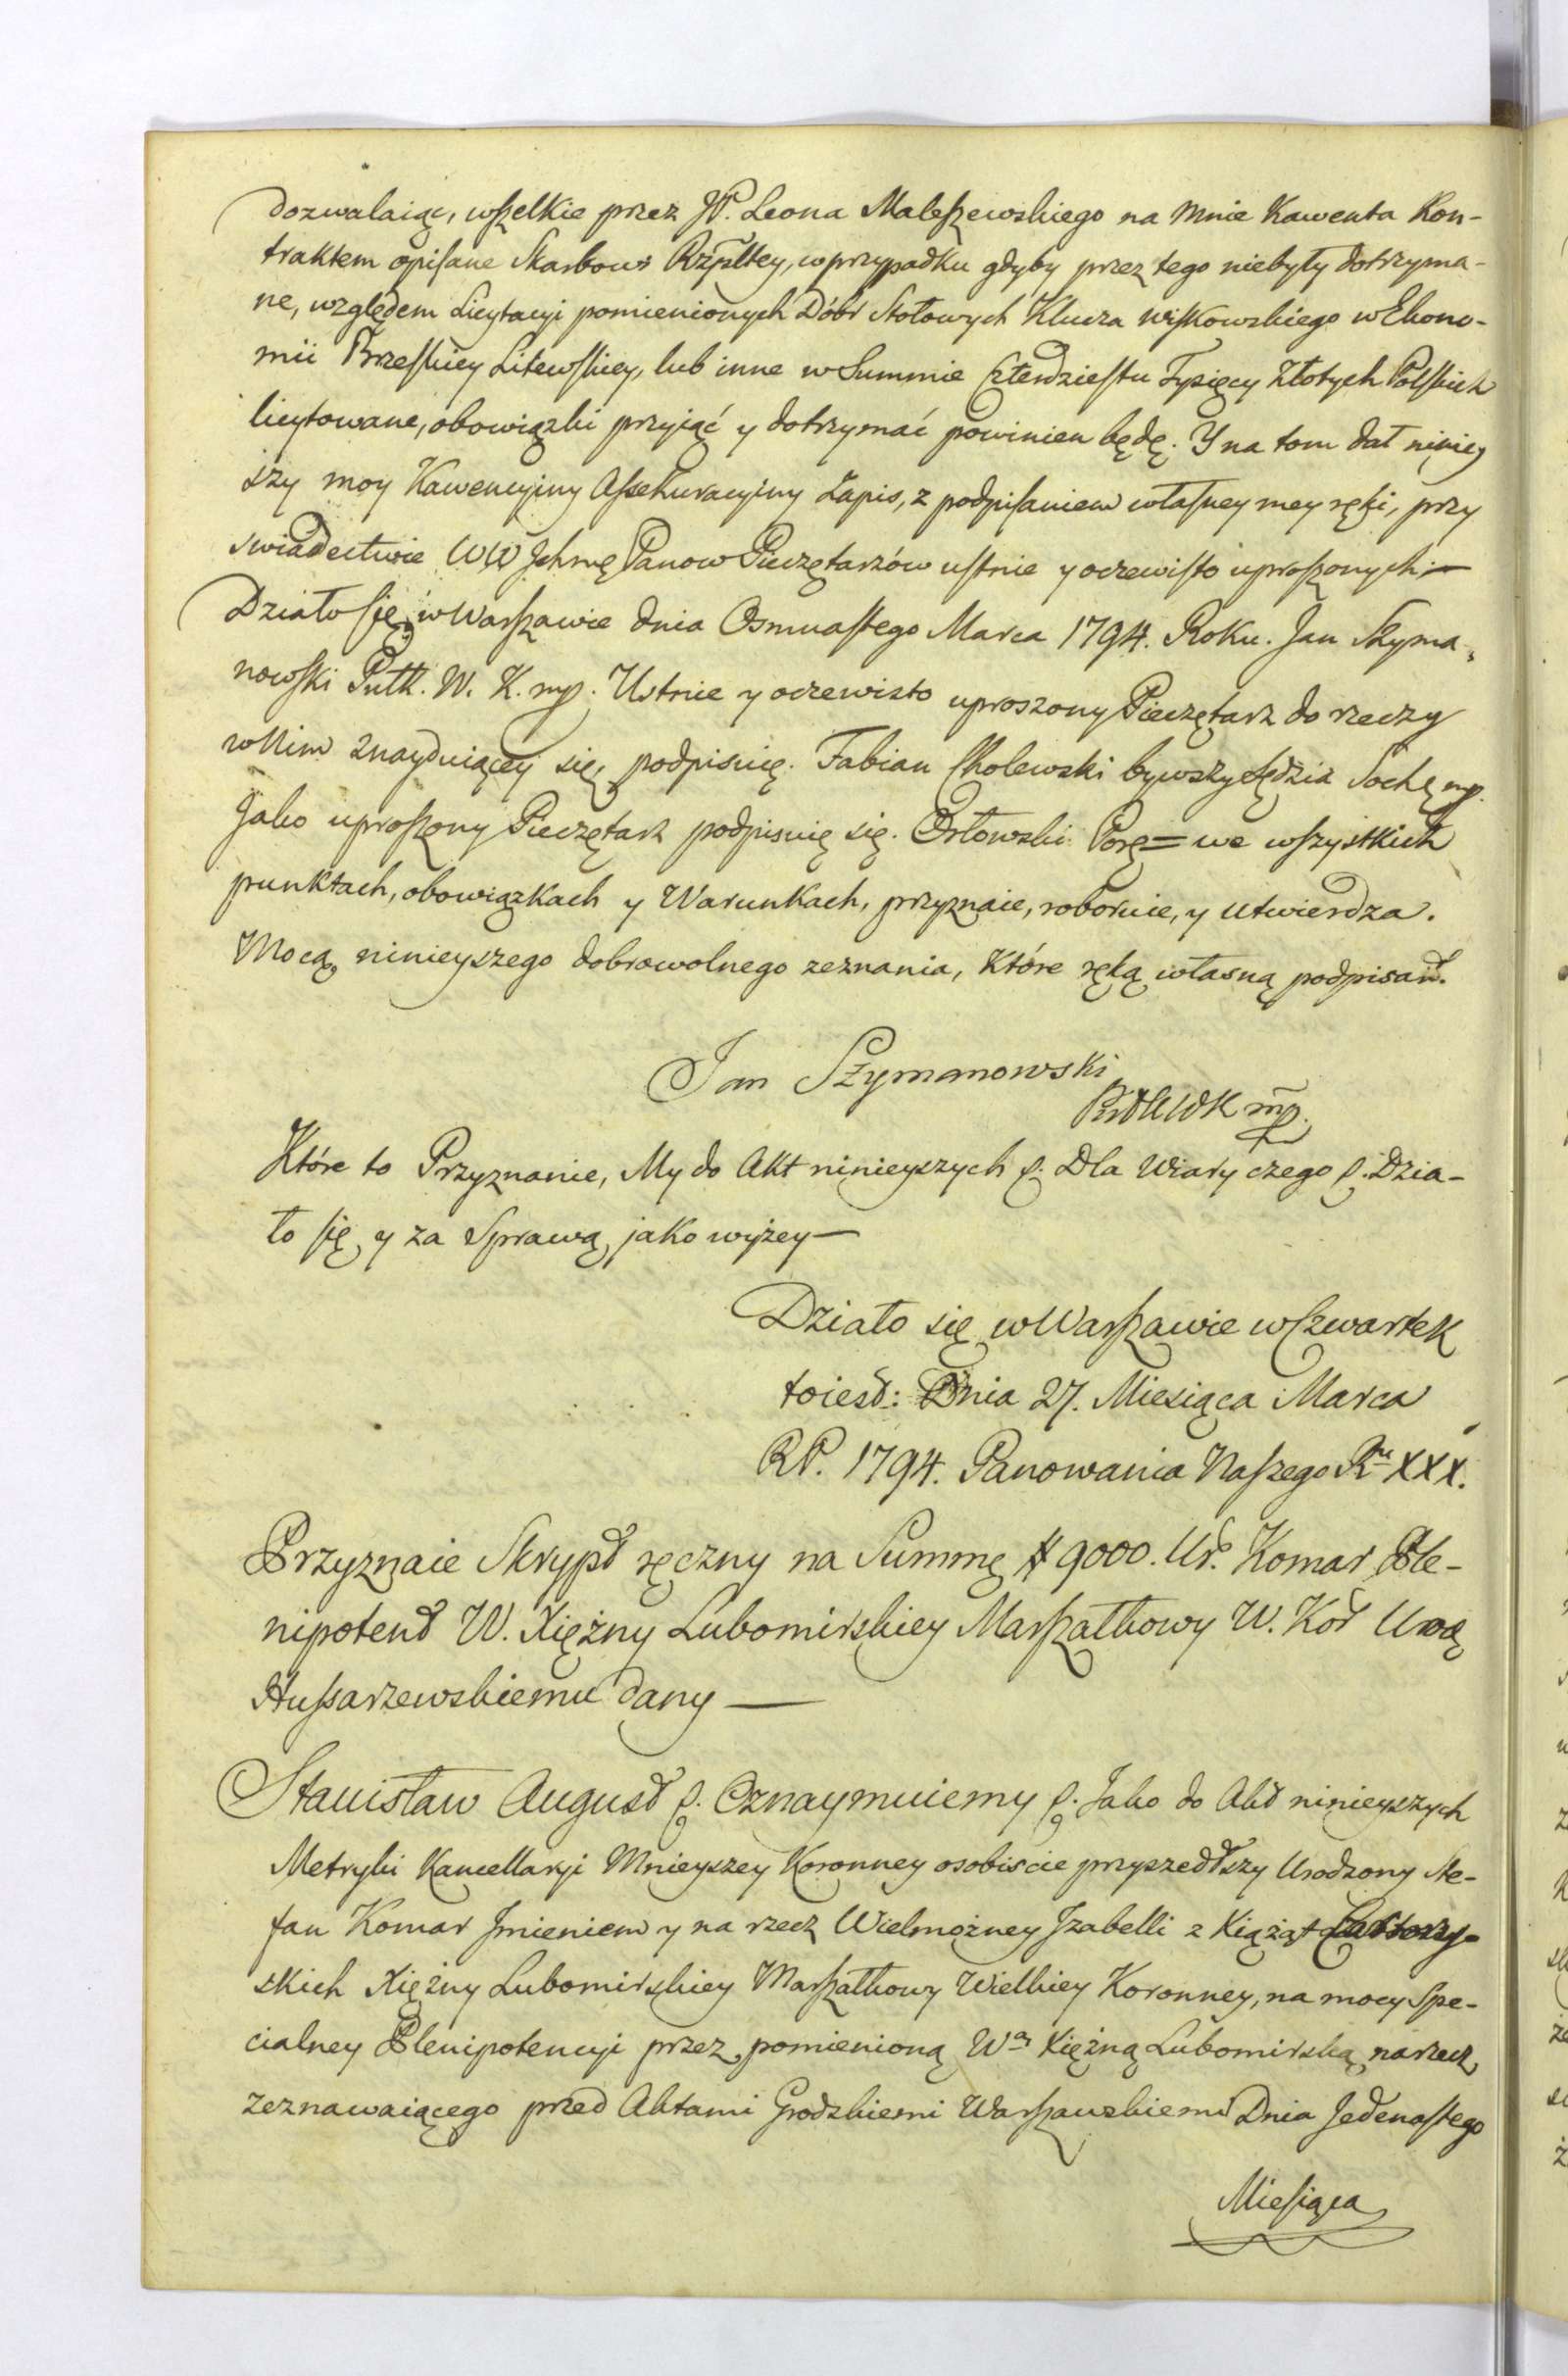 dozwalaiąc, wszelkie przez JP. Leona Maleszewskiego na mnie Kawenta Kon-
traktem opisane Skarbowi Rzpltey, w przypadku gdyby przez tego niebyły dotrzyma-
ne, względem Licytacyi pomienionych Dóbr Stołowych Klucza Wiskowskiego w Ekono-
mii Brzeskiey Litewskiey, lub inne w Summie Czterdziestu Tysięcy Złotych Polskich
licytowane, obowiązki przyiąć y dotrzymać powinien będę. Y na tom dał niniey
szy moy Kawencyjny Assekuracyjny Zapis, z podpisaniem własney mey ręki, przy
swiadectwie WW Jchmę Panow Pieczętarzów ustnie y oczewisto uproszonych —
Działo się w Warszawie dnia Osmnastego Marca 1794. Roku. Jan Skyma-
nowski Pułk. W. K. mp. Ustnie y oczewisto uproszony Pieczętarz do rzeczy
w Nim znayduiącey się, podpisuię. Fabian Cholewski bywszy Sędzia Sochę mp.
Jako uproszony Pieczętarz podpisuię się. Orłowski Porę = we wszystkich
punktach, obowiązkach y Warunkach, przyznaie, roboruie, y utwierdza.
Mocą ninieyszego dobrowolnego zeznania, Które ręką własną podpisał.
Jan Szymanowski
mp.
Które to Przyznanie, My do Akt ninieyszych p. Dla Wiary czego p. Dzia-
ło się y za Sprawą jako wyżey —
Działo się w Warszawie w Czwartek
toiest: Dnia 27. Miesiąca Marca
RP. 1794. Panowania Naszego Ru XXX.
Przyznaie Skrypt ręczny na Summę # 9000. Ur. Komar Ple-
nipotent W. Xiężny Lubomirskiey Marszałkowy W. Kor Urodę
Hussarzewskiemu dany —
Stanisław August p. Oznaymuiemy p. Jako do Akt ninieyszych
Metryki Kancellaryi Mnieyszey Koronney osobiscie przyszedłszy Urodzony Ste-
fan Komar Jmieniem y na rzecz Wielmożney Jzabelli z Xiążąt Czartory-
skich Xiężny Lubomirskiey Marszałkowy Wielkiey Koronney, na mocy Spe-
cialney Plenipotencyi przez pomienioną Wą Xiężną Lubomirską na rzecz
zeznawaiącego przed Aktami Grodzkiemi Warszawskiemi Dnia Jedenastego
Miesiąca